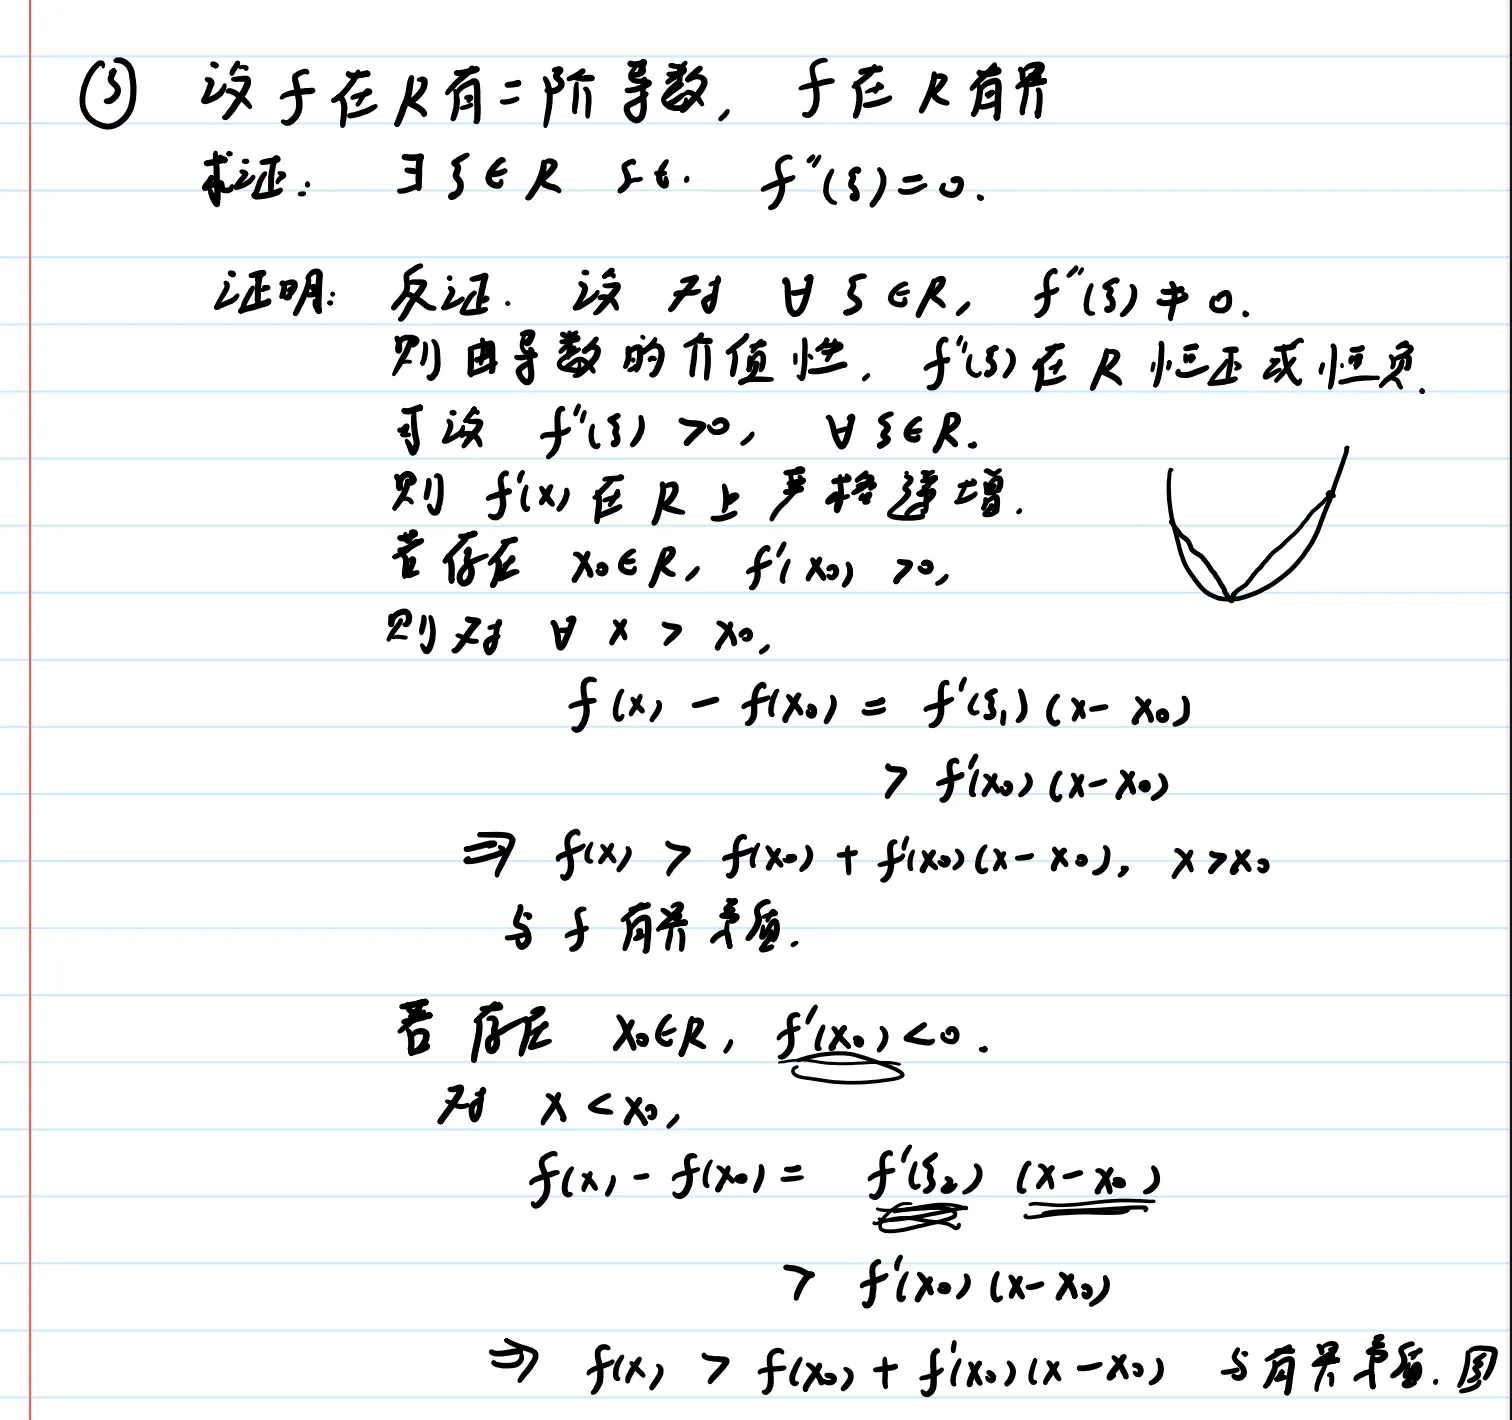 ⑤ 设f在R有二阶导数, f在R有界
求证: ∃ξ∈R s.t. f″(ξ)=0.
证明: 反证. 设对∀ξ∈R, f″(ξ)≠0.
则由导数的介值性, f″(ξ)在R恒正或恒负.
可设 f″(ξ)>0, ∀ξ∈R.
则 f′(x)在R上严格递增.
若存在 x₀∈R, f′(x₀)>0,
则对 ∀x>x₀,
f(x) - f(x₀) = f′(ξ₁)(x-x₀)
> f′(x₀)(x-x₀)
⇒ f(x) > f(x₀) + f′(x₀)(x-x₀), x>x₀
与f有界矛盾.
若存在 x₀∈R, f′(x₀)<0.
对 x<x₀,
f(x) - f(x₀) = f′(ξ₂)(x-x₀)
> f′(x₀)(x-x₀)
⇒ f(x) > f(x₀) + f′(x₀)(x-x₀) 与有界矛盾.